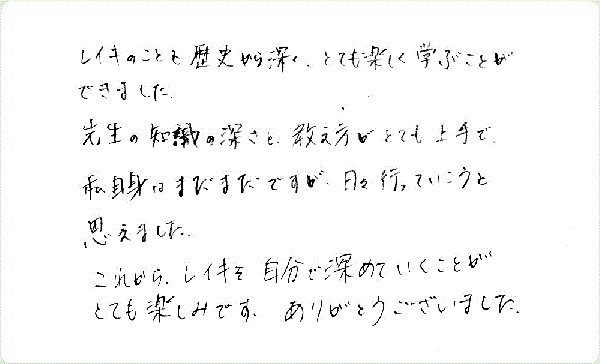 レイキのことを歴史から深く、とても楽しく学ぶことが
できました。
先生の知識の深さと、教え方がとても上手で、
私自身はまだまだですが、日々行っていこうと
思えました。
これから、レイキを自分で深めていくことが
とても楽しみです。ありがとうございました。